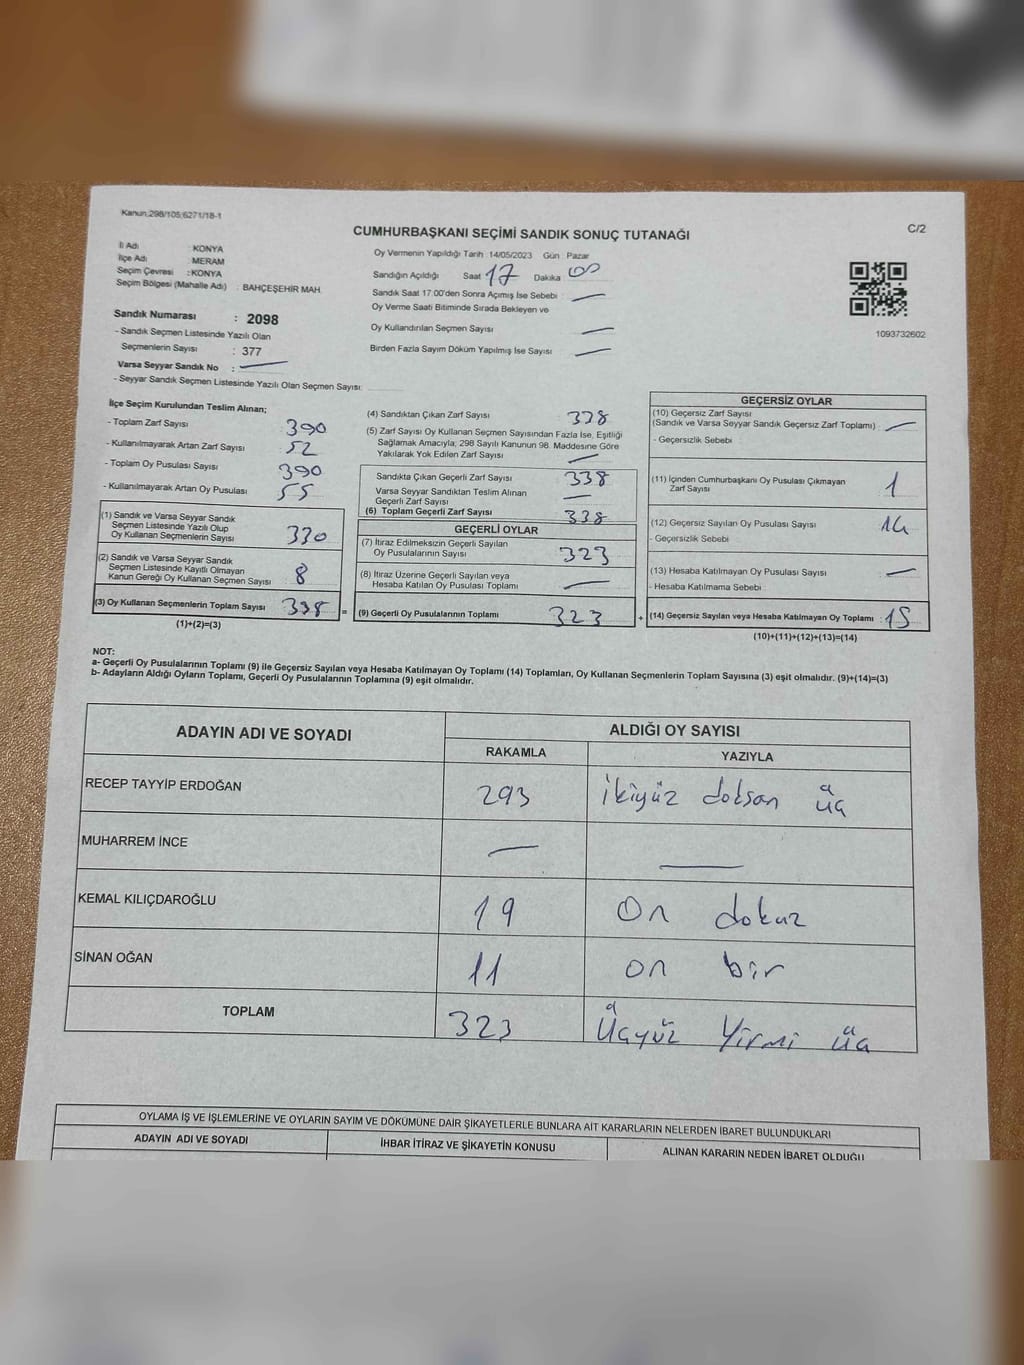 Kanun:298/105;6271/18-1
C/2
CUMHURBAŞKANI SEÇİMİ SANDIK SONUÇ TUTANAĞI
İl Adı : KONYA
İlçe Adı : MERAM
Seçim Çevresi : KONYA
Seçim Bölgesi (Mahalle Adı) : BAHÇEŞEHİR MAH.
Sandık Numarası : 2098
- Sandık Seçmen Listesinde Yazılı Olan
Seçmenlerin Sayısı : 377
Varsa Seyyar Sandık No : —
- Seyyar Sandık Seçmen Listesinde Yazılı Olan Seçmen Sayısı:
Oy Vermenin Yapıldığı Tarih : 14/05/2023 Gün : Pazar
Sandığın Açıldığı Saat 17 Dakika 00
Sandık Saat 17.00'den Sonra Açımış İse Sebebi : —
Oy Verme Saati Bitiminde Sırada Bekleyen ve
Oy Kullandırılan Seçmen Sayısı —
Birden Fazla Sayım Döküm Yapılmış İse Sayısı —
1093732602
İlçe Seçim Kurulundan Teslim Alınan;
- Toplam Zarf Sayısı 390
- Kullanılmayarak Artan Zarf Sayısı 52
- Toplam Oy Pusulası Sayısı 390
- Kullanılmayarak Artan Oy Pusulası 55
(1) Sandık ve Varsa Seyyar Sandık
Seçmen Listesinde Yazılı Olup
Oy Kullanan Seçmenlerin Sayısı 330
(2) Sandık ve Varsa Seyyar Sandık
Seçmen Listesinde Kayıtlı Olmayan
Kanun Gereği Oy Kullanan Seçmen Sayısı 8
(3) Oy Kullanan Seçmenlerin Toplam Sayısı 338 =
(1)+(2)=(3)
(4) Sandıktan Çıkan Zarf Sayısı 338
(5) Zarf Sayısı Oy Kullanan Seçmen Sayısından Fazla İse, Eşitliği
Sağlamak Amacıyla; 298 Sayılı Kanunun 98. Maddesine Göre
Yakılarak Yok Edilen Zarf Sayısı —
Sandıkta Çıkan Geçerli Zarf Sayısı 338
Varsa Seyyar Sandıktan Teslim Alınan
Geçerli Zarf Sayısı —
(6) Toplam Geçerli Zarf Sayısı 338
GEÇERLİ OYLAR
(7) İtiraz Edilmeksizin Geçerli Sayılan
Oy Pusulalarının Sayısı 323
(8) İtiraz Üzerine Geçerli Sayılan veya
Hesaba Katılan Oy Pusulası Toplamı —
(9) Geçerli Oy Pusulalarının Toplamı 323 +
GEÇERSİZ OYLAR
(10) Geçersiz Zarf Sayısı
(Sandık ve Varsa Seyyar Sandık Geçersiz Zarf Toplamı) : —
- Geçersizlik Sebebi
(11) İçinden Cumhurbaşkanı Oy Pusulası Çıkmayan
Zarf Sayısı 1
(12) Geçersiz Sayılan Oy Pusulası Sayısı 14
- Geçersizlik Sebebi
(13) Hesaba Katılmayan Oy Pusulası Sayısı —
- Hesaba Katılmama Sebebi
(14) Geçersiz Sayılan veya Hesaba Katılmayan Oy Toplamı : 15
(10)+(11)+(12)+(13)=(14)
NOT:
a- Geçerli Oy Pusulalarının Toplamı (9) ile Geçersiz Sayılan veya Hesaba Katılmayan Oy Toplamı (14) Toplamları, Oy Kullanan Seçmenlerin Toplam Sayısına (3) eşit olmalıdır. (9)+(14)=(3)
b- Adayların Aldığı Oyların Toplamı, Geçerli Oy Pusulalarının Toplamına (9) eşit olmalıdır.
ADAYIN ADI VE SOYADI ALDIĞI OY SAYISI
RAKAMLA YAZIYLA
RECEP TAYYİP ERDOĞAN 293 İkiyüz doksan üç
MUHARREM İNCE — —
KEMAL KILIÇDAROĞLU 19 On dokuz
SİNAN OĞAN 11 on bir
TOPLAM 323 Üçyüz Yirmi üç
OYLAMA İŞ VE İŞLEMLERİNE VE OYLARIN SAYIM VE DÖKÜMÜNE DAİR ŞİKAYETLERLE BUNLARA AİT KARARLARIN NELERDEN İBARET BULUNDUKLARI
ADAYIN ADI VE SOYADI İHBAR İTİRAZ VE ŞİKAYETİN KONUSU ALINAN KARARIN NEDEN İBARET OLDUĞU